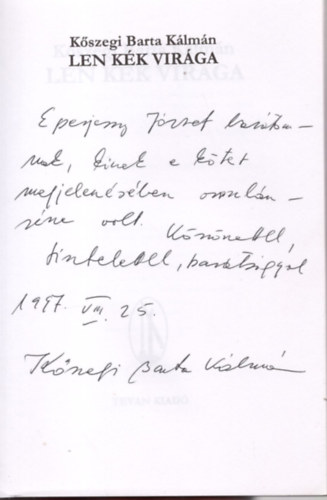 Kőszegi Barta Kálmán
LEN KÉK VIRÁGA
Eperjessy József barátom-
nak, kinek e kötet
megjelenésében oroszlán-
része volt. Köszönettel,
tisztelettel, barátsággal
1997. VIII. 25.
Kőszegi Barta Kálmán
TEVAN KIADÓ